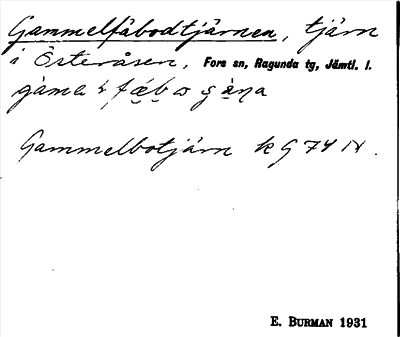 Gammelfäbodtjärnen, tjärn
i Österåsen, Fors sn, Ragunda tg, Jämtl. l.
Gammelbotjärn k G 74 N.
E. BURMAN 1931